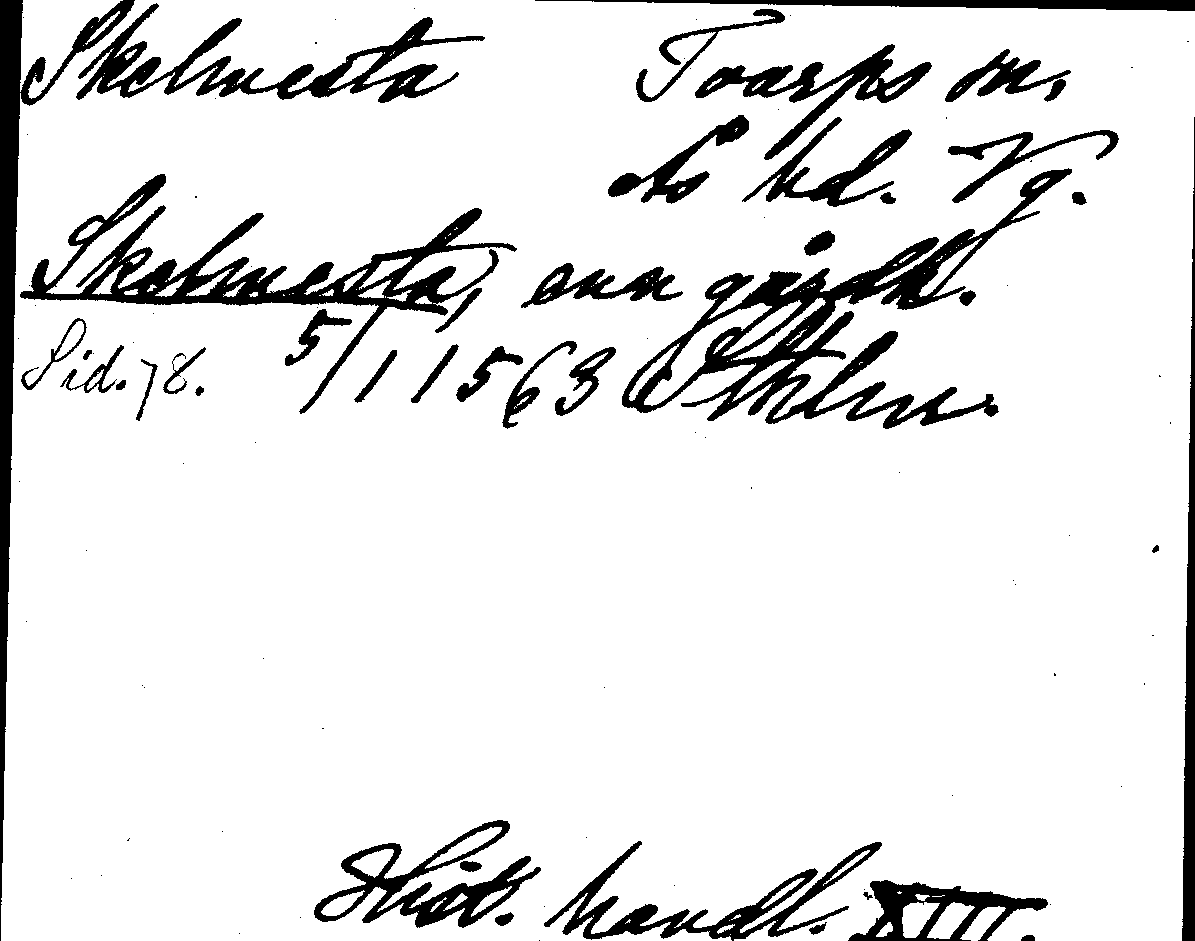 Skelmesta Toarps sn,
Ås hd. Vg.
Skelmesta, enn gårdh.
Sid. 78. 5/11 1563 Sthlm.
Hist. handl. XIII.